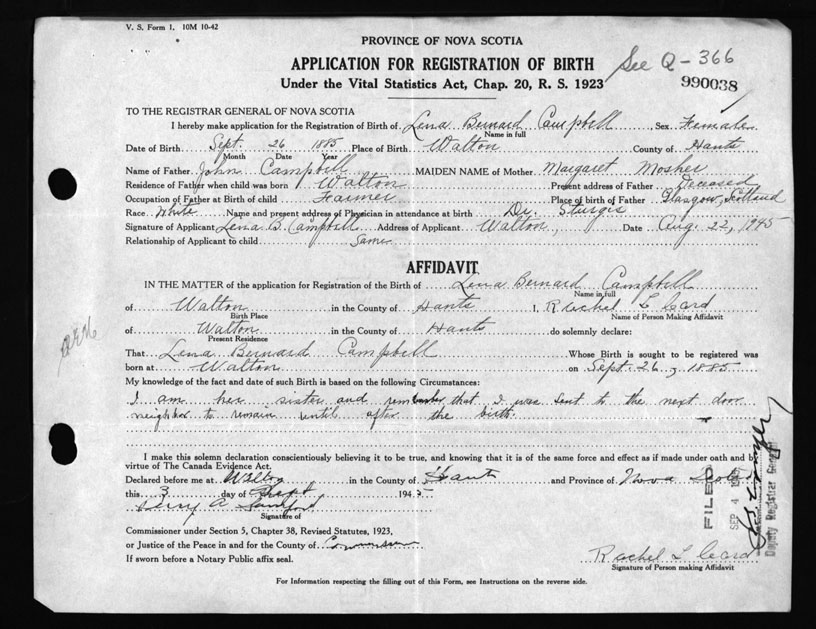 V. S. Form 1. 10M 10-42
PROVINCE OF NOVA SCOTIA
APPLICATION FOR REGISTRATION OF BIRTH
See Q-366
Under the Vital Statistics Act, Chap. 20, R. S. 1923
990038
TO THE REGISTRAR GENERAL OF NOVA SCOTIA
I hereby make application for the Registration of Birth of Lena Bernard Campbell, Sex Female
Name in full
Date of Birth Sept. 26 1885 Place of Birth Walton County of Hants
Month Date Year
Name of Father John Campbell MAIDEN NAME of Mother Margaret Mosher
Residence of Father when child was born Walton Present address of Father Deceased
Occupation of Father at Birth of child Farmer Place of birth of Father Glasgow, Scotland
Race White Name and present address of Physician in attendance at birth Dr. Sturgis
Signature of Applicant Lena B. Campbell Address of Applicant Walton, Date Aug. 22, 1945
Relationship of Applicant to child Same
AFFIDAVIT
IN THE MATTER of the application for Registration of the Birth of Lena Bernard Campbell
Name in full
of Walton in the County of Hants I, Rachel L Card
Birth Place Name of Person Making Affidavit
of Walton in the County of Hants do solemnly declare:
Present Residence
That Lena Bernard Campbell Whose Birth is sought to be registered was
born at Walton on Sept. 26, 1885
My knowledge of the fact and date of such Birth is based on the following Circumstances:
I am her sister and remember that I was sent to the next door
neighbor to remain until after the birth.
I make this solemn declaration conscientiously believing it to be true, and knowing that it is of the same force and effect as if made under oath and by
virtue of The Canada Evidence Act.
Declared before me at Walton in the County of Hants and Province of Nova Scotia
this 3 day of Sept 1945
Signature of
Commissioner under Section 5, Chapter 38, Revised Statutes, 1923,
or Justice of the Peace in and for the County of
If sworn before a Notary Public affix seal.
Rachel L Card
Signature of Person making Affidavit
FILED
SEP 4
Deputy Registrar General
For Information respecting the filling out of this Form, see Instructions on the reverse side.